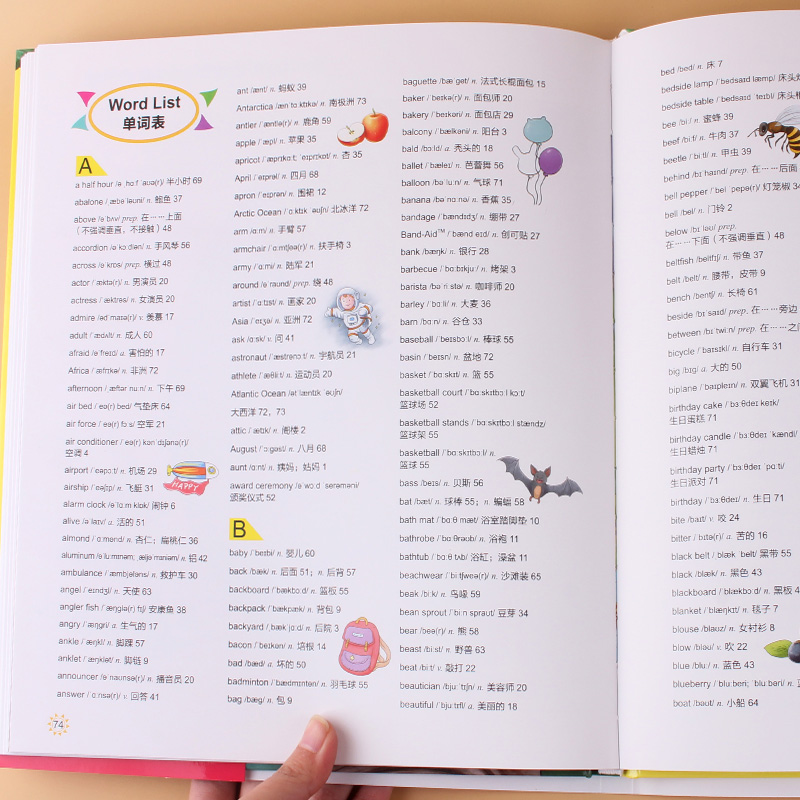 Word List
单词表
A
a half hour /ə ˌhɑːf ˈaʊə(r)/ 半小时 69
abalone / ˌæbəˈləʊni/ n. 鲍鱼 37
above /əˈbʌv/ prep. 在……上面
（不强调垂直，不接触）48
accordion /əˈkɔːdiən/ n. 手风琴 56
across /əˈkrɒs/ prep. 横过 48
actor / ˈæktə(r)/ n. 男演员 20
actress / ˈæktrəs/ n. 女演员 20
admire /ədˈmaɪə(r)/ v. 羡慕 17
adult / ˈædʌlt/ n. 成人 60
afraid /əˈfreɪd/ a. 害怕的 17
Africa / ˈæfrɪkə/ n. 非洲 72
afternoon / ˌæftərˈnuːn/ n. 下午 69
air bed / ˈeə(r) bed/ 气垫床 64
air force / ˈeə(r) fɔːs/ 空军 21
air conditioner / ˈeə(r) kənˌdɪʃənə(r)/
空调 4
airport / ˈeəpɔːt/ n. 机场 29
airship / ˈeəʃɪp/ n. 飞艇 31
alarm clock /əˈlɑːm klɒk/ 闹钟 6
alive /əˈlaɪv/ a. 活的 51
almond / ˈɑːmənd/ n. 杏仁；扁桃仁 36
aluminum /əˈluːmɪnəm; ˌæljəˈmɪniəm/ n. 铝 42
ambulance / ˈæmbjələns/ n. 救护车 30
angel / ˈeɪndʒl/ n. 天使 63
angler fish / ˈæŋɡlə(r) fɪʃ/ 安康鱼 38
angry / ˈæŋɡri/ a. 生气的 17
ankle / ˈæŋkl/ n. 脚踝 57
anklet / ˈæŋklət/ n. 脚链 9
announcer /əˈnaʊnsə(r)/ n. 播音员 20
answer / ˈɑːnsə(r)/ v. 回答 41
74
ant /ænt/ n. 蚂蚁 39
Antarctica /ænˈtɑːktɪkə/ n. 南极洲 73
antler / ˈæntlə(r)/ n. 鹿角 59
apple / ˈæpl/ n. 苹果 35
apricot / ˈæprɪkɒt; ˈeɪprɪkɒt/ n. 杏 35
April / ˈeɪprəl/ n. 四月 68
apron / ˈeɪprən/ n. 围裙 12
Arctic Ocean / ˌɑːktɪk ˈəʊʃn/ 北冰洋 72
arm /ɑːm/ n. 手臂 57
armchair / ˈɑːmtʃeə(r)/ n. 扶手椅 3
army / ˈɑːmi/ n. 陆军 21
around /əˈraʊnd/ prep. 绕 48
artist / ˈɑːtɪst/ n. 画家 20
Asia / ˈeɪʒə/ n. 亚洲 72
ask /ɑːsk/ v. 问 41
astronaut / ˈæstrənɔːt/ n. 宇航员 21
athlete / ˈæθliːt/ n. 运动员 20
Atlantic Ocean /ətˌlæntɪk ˈəʊʃn/
大西洋 72，73
attic / ˈætɪk/ n. 阁楼 2
August / ˈɔːɡəst/ n. 八月 68
aunt /ɑːnt/ n. 姨妈；姑妈 1
award ceremony /əˈwɔːd ˈserəməni/
颁奖仪式 52
B
baby / ˈbeɪbi/ n. 婴儿 60
back /bæk/ n. 后面 51；n. 后背 57
backboard / ˈbækbɔːd/ n. 篮板 55
backpack / ˈbækpæk/ n. 背包 9
backyard / ˌbækˈjɑːd/ n. 后院 3
bacon / ˈbeɪkən/ n. 培根 14
bad /bæd/ a. 坏的 50
badminton / ˈbædmɪntən/ n. 羽毛球 55
bag /bæɡ/ n. 包 9
HAPPY
baguette /bæˈɡet/ n. 法式长棍面包 15
baker / ˈbeɪkə(r)/ n. 面包师 20
bakery / ˈbeɪkəri/ n. 面包店 29
balcony / ˈbælkəni/ n. 阳台 3
bald /bɔːld/ a. 秃头的 18
ballet / ˈbæleɪ/ n. 芭蕾舞 56
balloon /bəˈluːn/ n. 气球 71
banana /bəˈnɑːnə/ n. 香蕉 35
bandage / ˈbændɪdʒ/ n. 绷带 27
Band-Aid™ / ˈbænd eɪd/ n. 创可贴 27
bank /bæŋk/ n. 银行 28
barbecue / ˈbɑːbɪkjuː/ n. 烤架 3
barista /bəˈriːstə/ n. 咖啡师 20
barley / ˈbɑːli/ n. 大麦 36
barn /bɑːn/ n. 谷仓 33
baseball / ˈbeɪsbɔːl/ n. 棒球 55
basin / ˈbeɪsn/ n. 盆地 72
basket / ˈbɑːskɪt/ n. 篮 55
basketball court / ˈbɑːskɪtbɔːl kɔːt/
篮球场 52
basketball stands / ˈbɑːskɪtbɔːl stændz/
篮球架 55
basketball / ˈbɑːskɪtbɔːl/ n.
篮球 55
bass /beɪs/ n. 贝斯 56
bat /bæt/ n. 球棒 55；n. 蝙蝠 58
bath mat / ˈbɑːθ mæt/ 浴室踏脚垫 10
bathrobe / ˈbɑːθrəʊb/ n. 浴袍 11
bathtub / ˈbɑːθtʌb/ n. 浴缸；澡盆 11
beachwear / ˈbiːtʃweə(r)/ n. 沙滩装 65
beak /biːk/ n. 鸟喙 59
bean sprout / ˈbiːn spraʊt/ 豆芽 34
bear /beə(r)/ n. 熊 58
beast /biːst/ n. 野兽 63
beat /biːt/ v. 敲打 22
beautician /bjuːˈtɪʃn/ n. 美容师 20
beautiful / ˈbjuːtɪfl/ a. 美丽的 18
bed /bed/ n. 床 7
bedside lamp / ˈbedsaɪd læmp/ 床头
bedside table / ˈbedsaɪd ˈteɪbl/ 床头
bee /biː/ n. 蜜蜂 39
beef /biːf/ n. 牛肉 37
beetle / ˈbiːtl/ n. 甲虫 39
behind /bɪˈhaɪnd/ prep. 在……后面
bell pepper / ˈbel ˌpepə(r)/ 灯笼椒 34
bell /bel/ n. 门铃 2
below /bɪˈləʊ/ prep.
在……下面（不强调垂直）48
beltfish /ˈbeltfɪʃ/ n. 带鱼 37
belt /belt/ n. 腰带，皮带 9
bench /bentʃ/ n. 长椅 61
beside /bɪˈsaɪd/ prep. 在……旁边
between /bɪˈtwiːn/ prep. 在……之
bicycle / ˈbaɪsɪkl/ n. 自行车 31
big /bɪɡ/ a. 大的 50
biplane / ˈbaɪpleɪn/ n. 双翼飞机 31
birthday cake / ˈbɜːθdeɪ keɪk/
生日蛋糕 71
birthday candle / ˈbɜːθdeɪ ˈkændl/
生日蜡烛 71
birthday party / ˈbɜːθdeɪ ˈpɑːti/
生日派对 71
birthday / ˈbɜːθdeɪ/ n. 生日 71
bite /baɪt/ v. 咬 24
bitter / ˈbɪtə(r)/ a. 苦的 16
black belt / ˌblæk ˈbelt/ 黑带 55
black /blæk/ n. 黑色 43
blackboard / ˈblækbɔːd/ n. 黑板 4
blanket / ˈblæŋkɪt/ n. 毯子 7
blouse /blaʊz/ n. 女衬衫 8
blow /bləʊ/ v. 吹 22
blue /bluː/ n. 蓝色 43
blueberry / ˈbluːbəri; ˈbluːberi/ n.
boat /bəʊt/ n. 小船 64